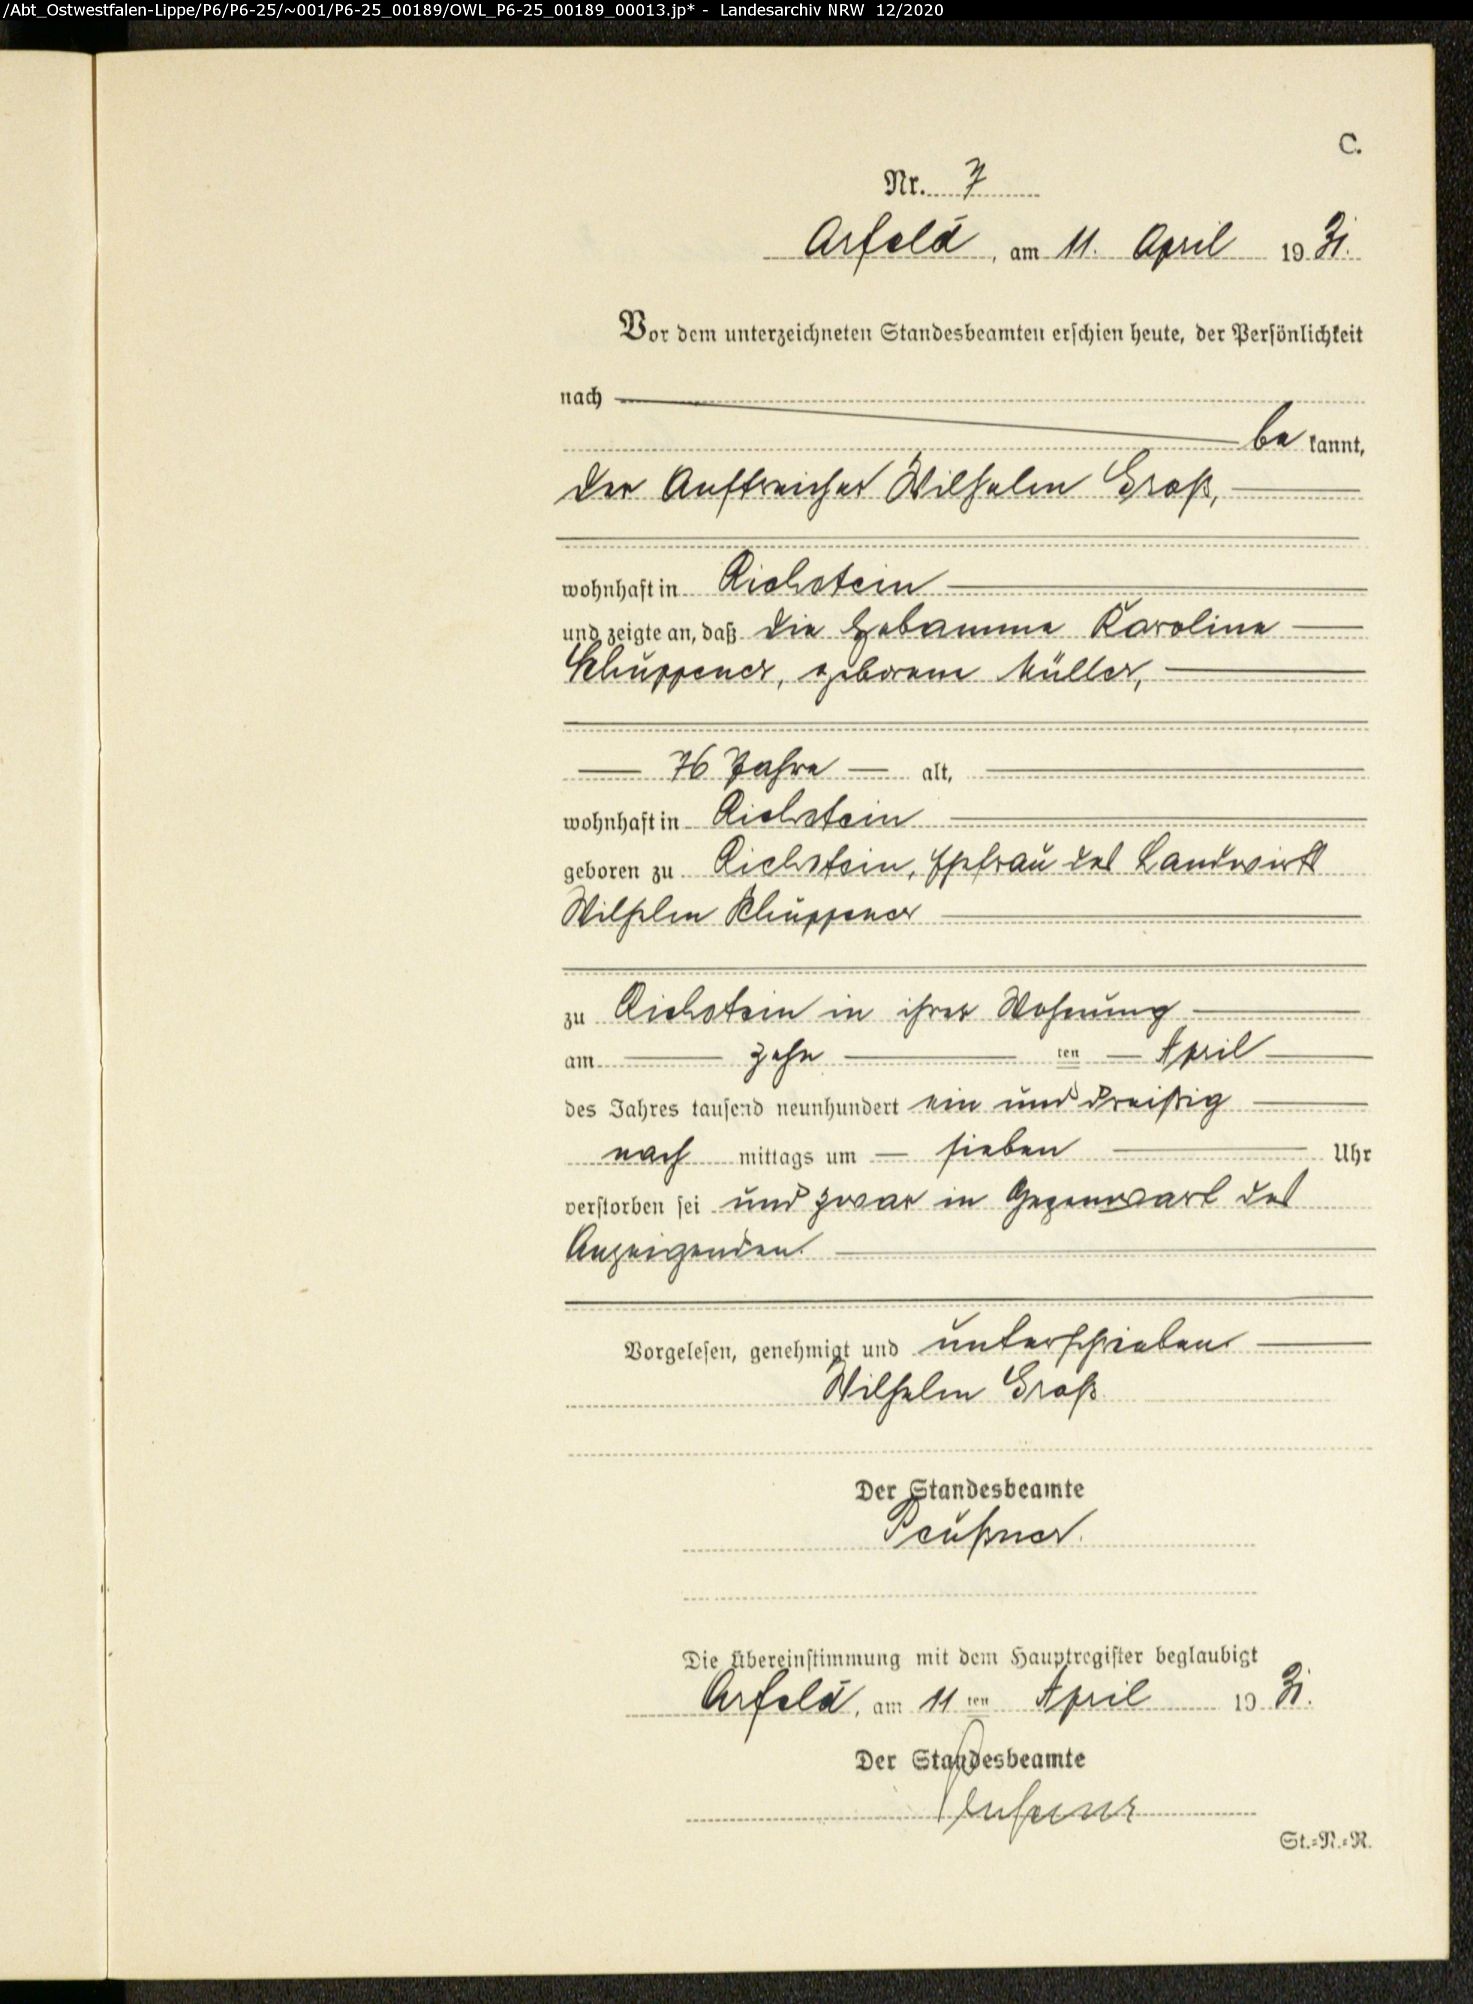 /Abt_Ostwestfalen-Lippe/P6/P6-25/~001/P6-25_00189/OWL_P6-25_00189_00013.jp* - Landesarchiv NRW 12/2020
C.
Nr. 7
Arfeld, am 11. April 1931.
Vor dem unterzeichneten Standesbeamten erschien heute, der Persönlichkeit
nach
be kannt,
der Anstreicher Wilhelm Groß,
wohnhaft in Richstein
und zeigte an, daß die Hebamme Karoline
Schüppener, geborene Müller,
76 Jahre alt,
wohnhaft in Richstein
geboren zu Richstein, Ehefrau des Landwirts
Wilhelm Schüppener
zu Richstein in ihrer Wohnung
am zehn ten April
des Jahres tausend neunhundert ein und dreißig
nach mittags um sieben Uhr
verstorben sei und zwar in Gegenwart des
Anzeigenden.
Vorgelesen, genehmigt und unterschrieben
Wilhelm Groß
Der Standesbeamte
Preußner
Die Übereinstimmung mit dem Hauptregister beglaubigt
Arfeld, am 11 ten April 1931.
Der Standesbeamte
St.=N.=R.